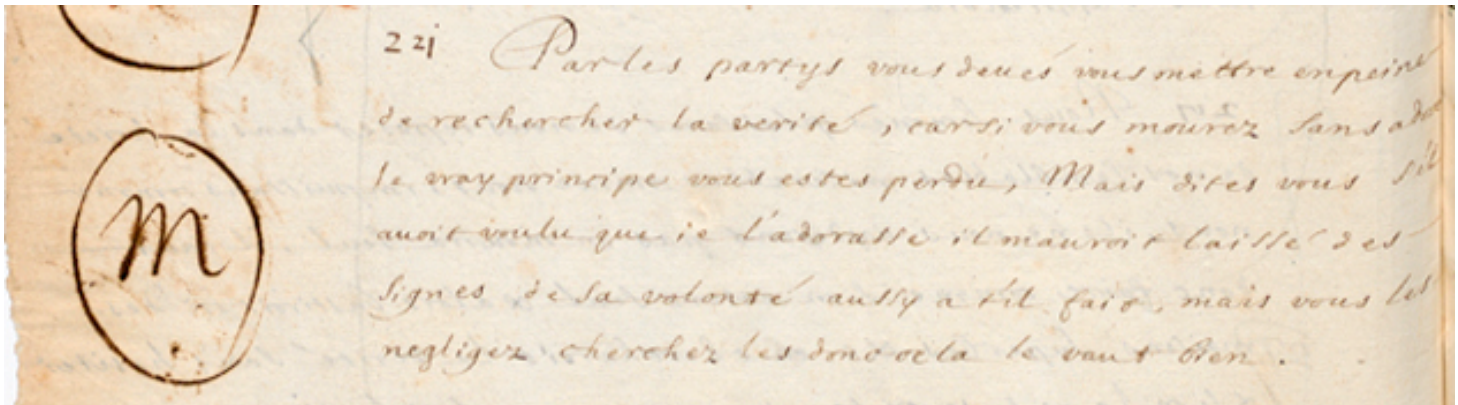 221 Par les partys vous deués vous mettre en peine
de rechercher la verité, car si vous mourez sans ador
le vray principe vous estes perdu, Mais dites vous s'il
auoit voulu que ie l'adorasse il mauroit laissé des
signes de sa volonté aussy a t'il fait, mais vous les
negligez cherchez les donc cela le vaut bien.
M